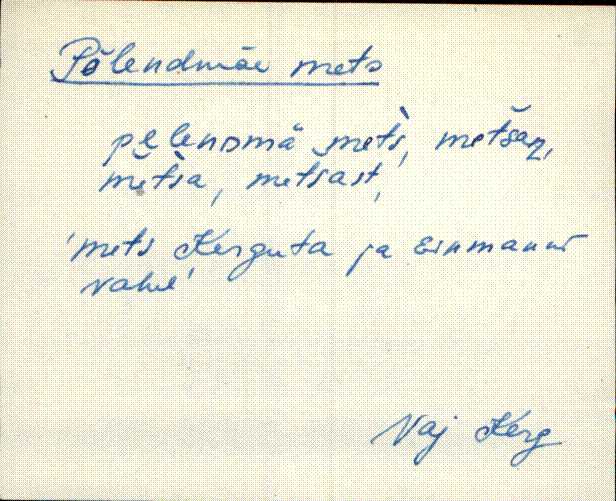 Põlendmäe mets
pęlenᴅmä mets̀, metsaᴢ,
mets̀a, metsast,
'mets Kerguta ja Einmanni
vahel'
Vaj Kerg